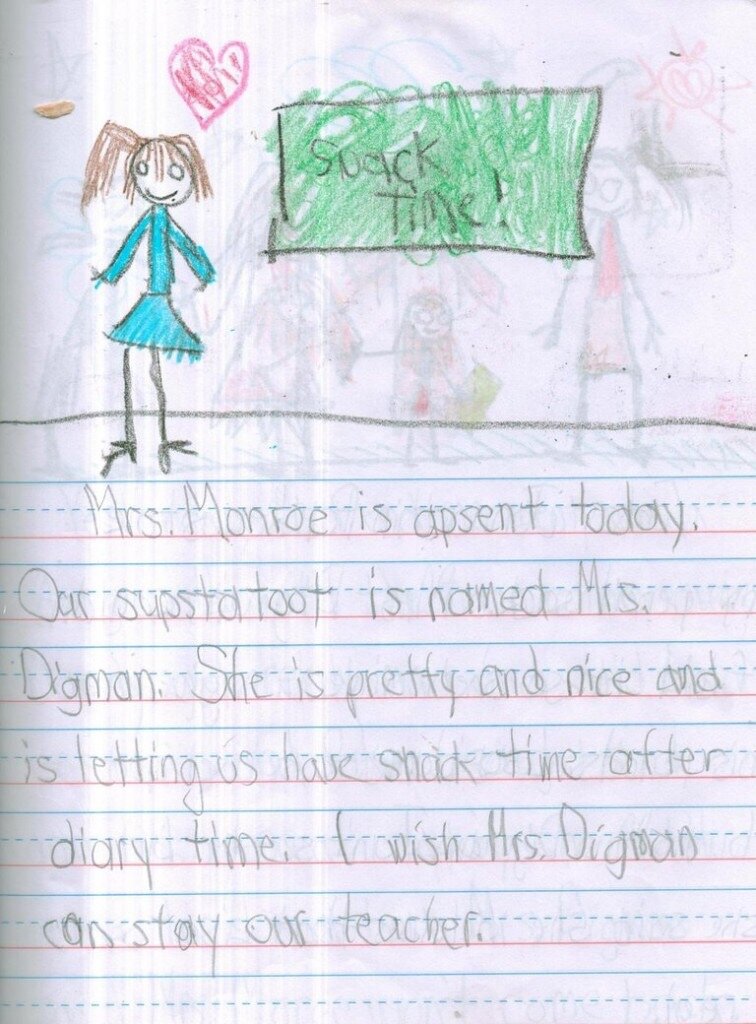 Snack
Time!
Mrs. Monroe is apsent today.
Our supstatoot is named Mrs.
Digman. She is pretty and nice and
is letting us have snack time after
diary time. I wish Mrs. Digman
can stay our teacher.